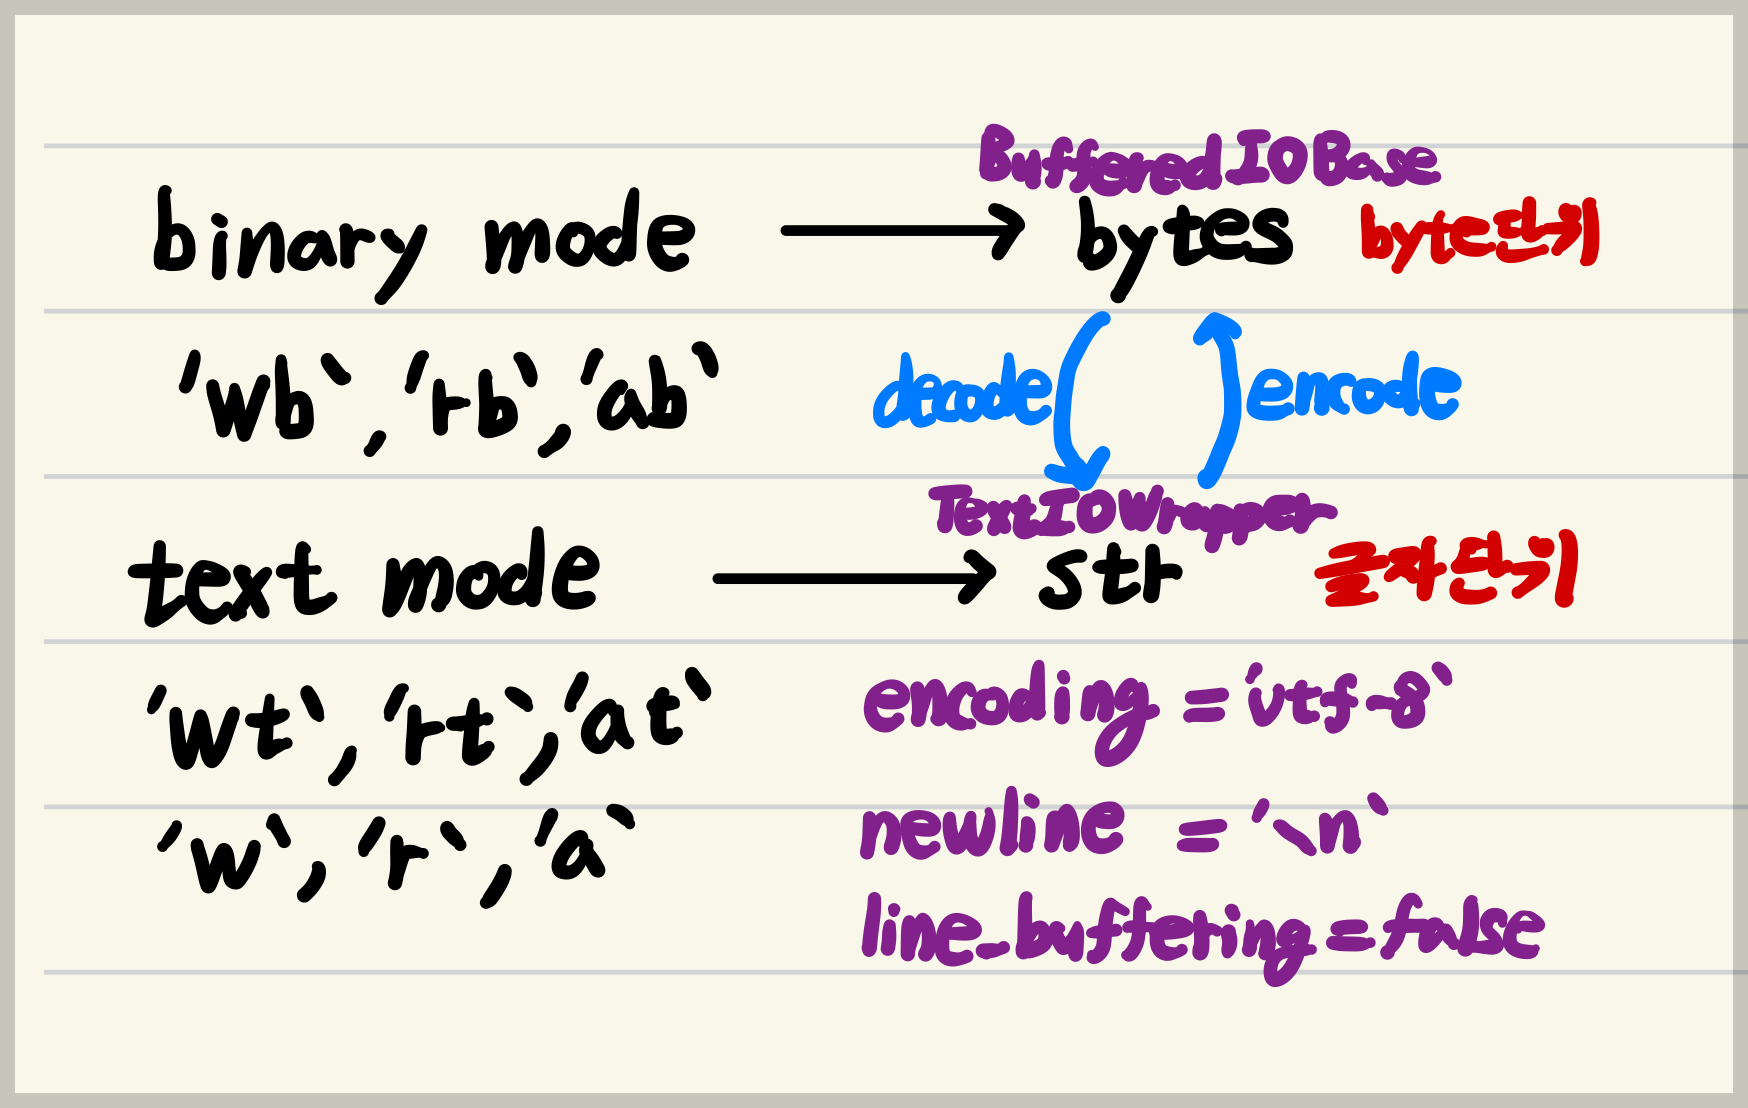 BufferedIOBase
binary mode → bytes byte단위
'wb', 'rb', 'ab'
decode encode
TextIOWrapper
text mode → str 글자단위
'wt', 'rt', 'at'
encoding = 'utf-8'
'w', 'r', 'a'
newline = '\n'
line_buffering = false